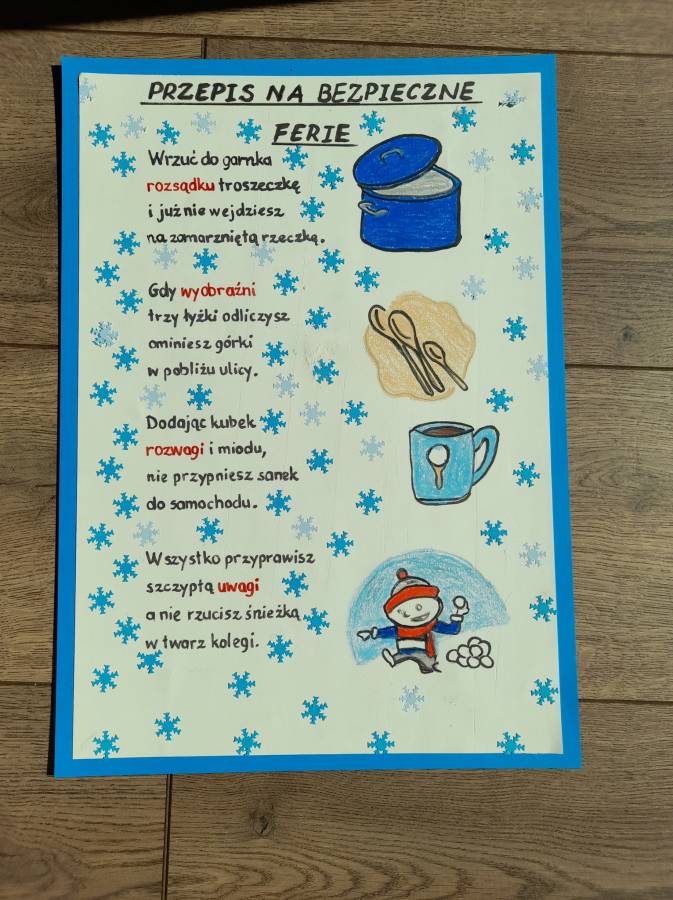 PRZEPIS NA BEZPIECZNE
FERIE
Wrzuć do garnka
rozsądku troszeczkę
i już nie wejdziesz
na zamarzniętą rzeczkę.
Gdy wyobraźni
trzy łyżki odliczysz
ominiesz górki
w pobliżu ulicy.
Dodając kubek
rozwagi i miodu,
nie przypniesz sanek
do samochodu.
Wszystko przyprawisz
szczyptą uwagi
a nie rzucisz śnieżką
w twarz kolegi.